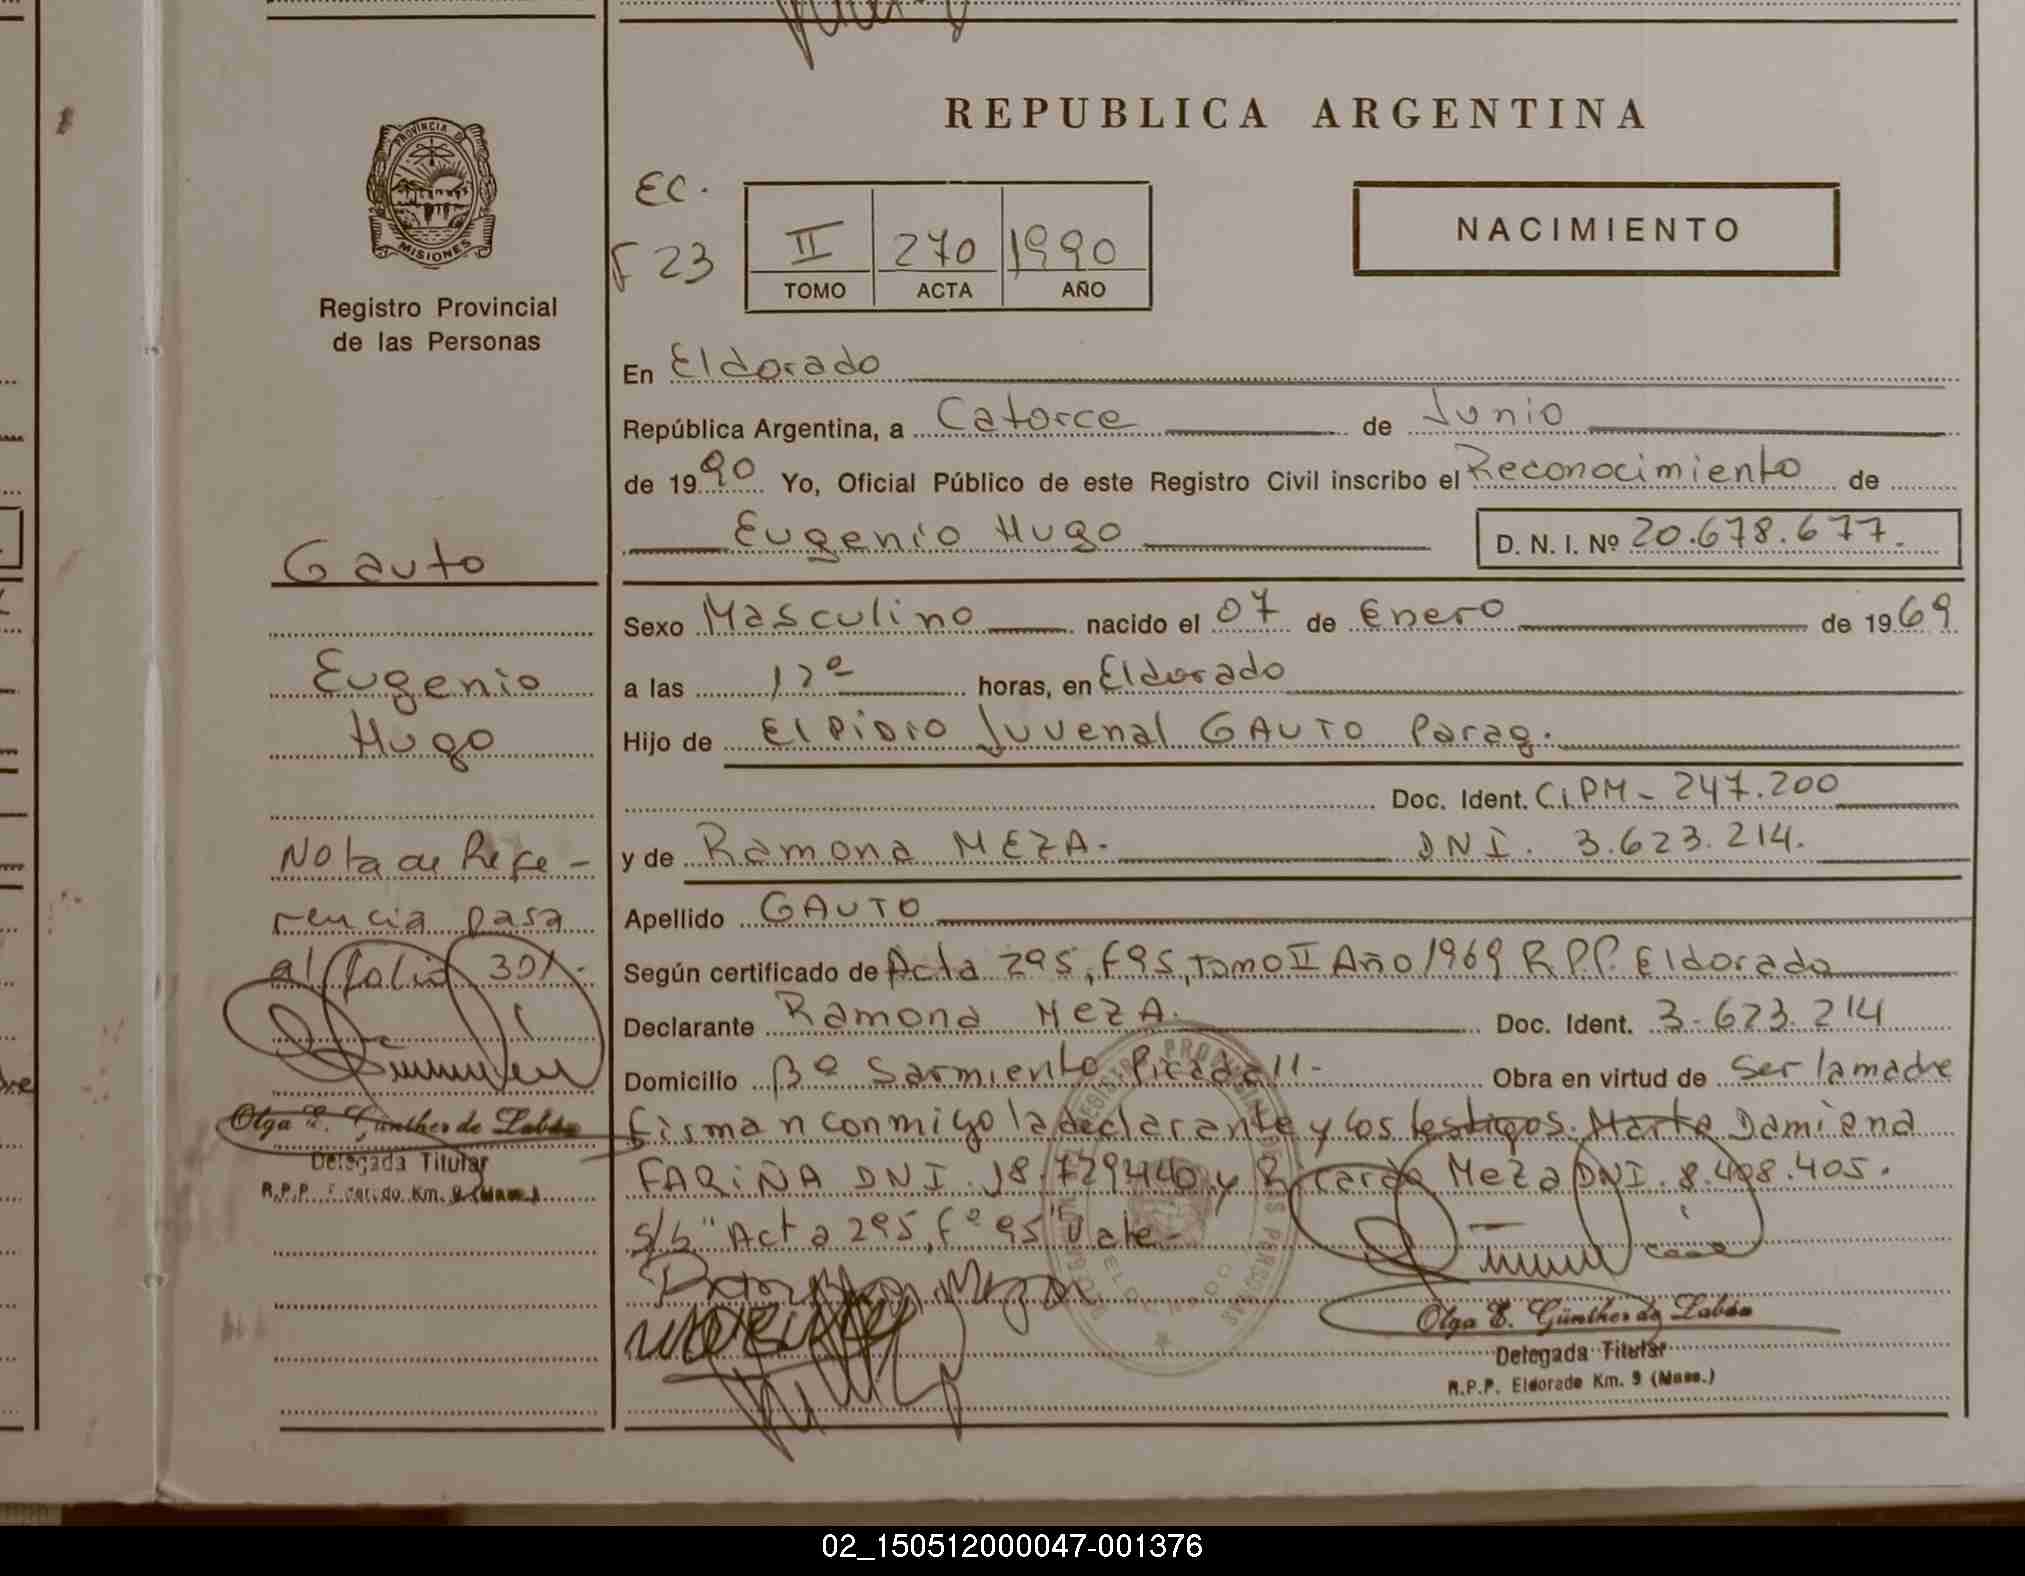 REPUBLICA ARGENTINA
PROVINCIA D
MISIONES
Registro Provincial
de las Personas
EC.
F 23
II 270 1990
TOMO ACTA AÑO
NACIMIENTO
En Eldorado
República Argentina, a Catorce de Junio
de 1990 Yo, Oficial Público de este Registro Civil inscribo el Reconocimiento de
Eugenio Hugo D. N. I. Nº 20.678.677.
Gauto
Eugenio
Hugo
Nota de Refe-
rencia pasa
al folio 301.
Olga E. Günther de Labán
Delegada Titular
R.P.P. Eldorado Km. 9 (Mnes.)
Sexo Masculino nacido el 07 de Enero de 1969
a las 12º horas, en Eldorado
Hijo de Elpidio Juvenal GAUTO Parag.
Doc. Ident. C.I.PM- 247.200
y de Ramona MEZA. DNI. 3.623.214.
Apellido GAUTO
Según certificado de Acta 295, F95, Tomo II Año 1969 R.P.P. Eldorado
Declarante Ramona MEZA. Doc. Ident. 3.623.214
Domicilio Bº Sarmiento Picada 11- Obra en virtud de Ser la madre
firman conmigo la declarante y los testigos. Marta Damiana
FARIÑA DNI. 18.729440 y Ricardo Meza DNI. 8.408.405.
s/b "Acta 295, Fº 95" Vale-
Olga E. Günther de Labán
Delegada Titular
R.P.P. Eldorado Km. 9 (Mnes.)
02_150512000047-001376